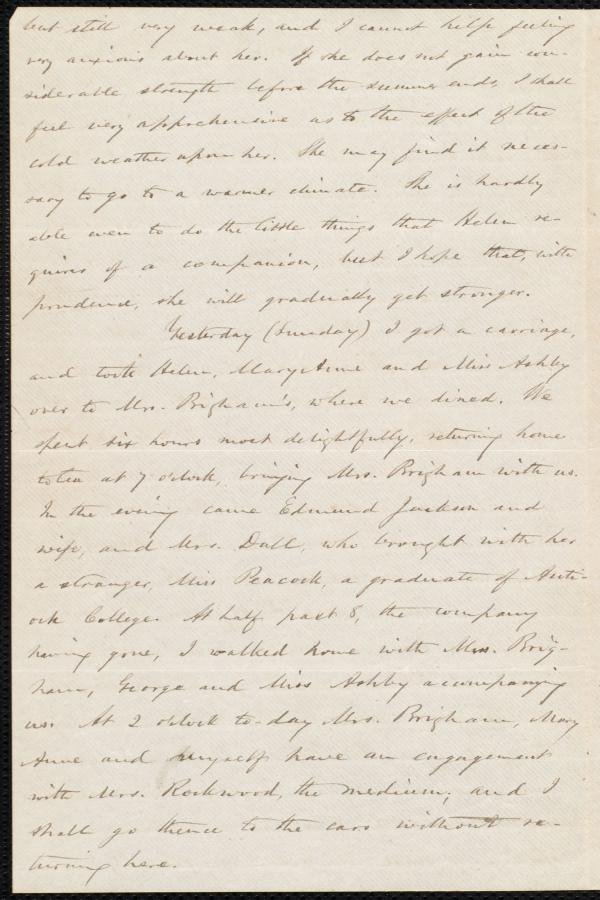 but still very weak, and I cannot help feeling
very anxious about her. If she does not gain con-
siderable strength before the summer ends, I shall
feel very apprehensive as to the effect of the
cold weather upon her. She may find it neces-
sary to go to a warmer climate. She is hardly
able even to do the little things that Helen re-
quires of a companion, but I hope that, with
prudence, she will gradually get stronger.
Yesterday (Sunday) I got a carriage,
and took Helen, Mary Anne and Miss Ashby
over to Mrs. Brigham's, where we dined. We
spent six hours most delightfully, returning home
to tea at 7 o'clock, bringing Mrs. Brigham with us.
In the evening came Edmund Jackson and
wife, and Mrs. Dall, who brought with her
a stranger, Miss Peacock, a graduate of Anti-
och College. At half past 8, the company
having gone, I walked home with Mrs. Brig-
ham, George and Miss Ashby accompanying
us. At 2 o'clock to-day Mrs. Brigham, Mary
Anne and myself have an engagement
with Mrs. Rockwood, the medium; and I
shall go thence to the cars without re-
turning here.